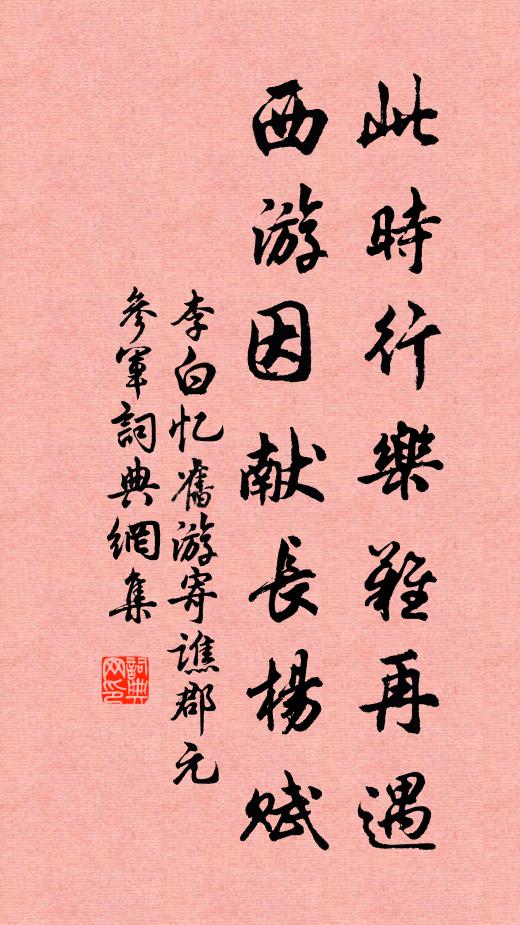 此時行樂難再遇
西游因献長楊賦
李白忆舊游寄譙郡元
參軍詞典網集
詞典网印